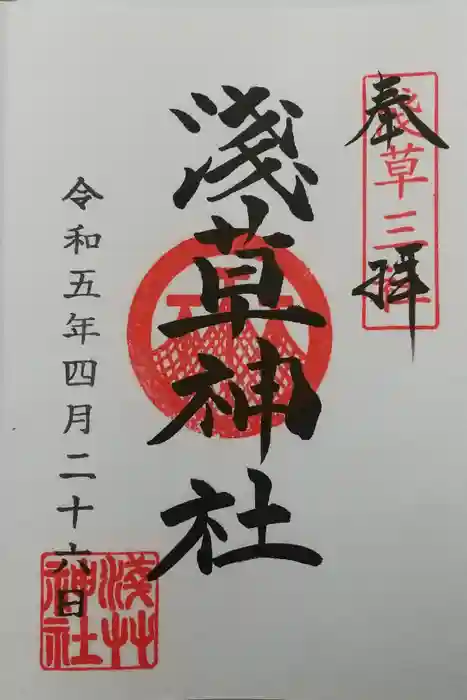 奉拝
浅草三社
淺草神社
令和五年四月二十六日
淺草神社